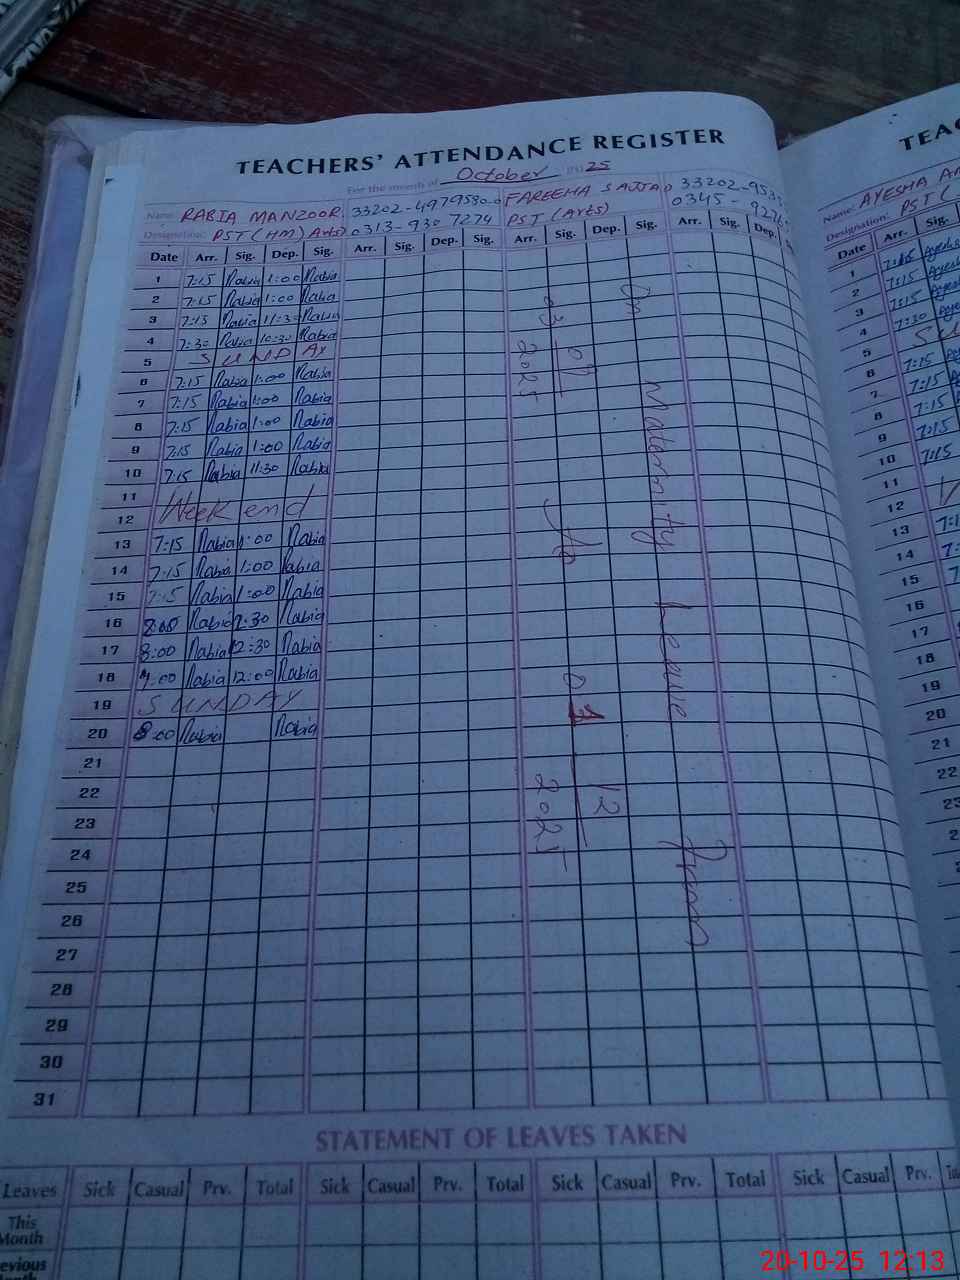 TEACHERS' ATTENDANCE REGISTER
For the month of October 2025
Name: RABIA MANZOOR 33202-4979580-0 FAREEHA SAJJAD 33202-953
Designation: PST (HM) Arts) 0313-930 7274 PST (Arts) 0345-
Date Arr. Sig. Dep. Sig. Arr. Sig. Dep. Sig. Arr. Sig. Dep. Sig. Arr. Sig. Dep.
1 7:15 Rabia 1:00 Rabia
2 7:15 Rabia 1:00 Rabia
3 7:15 Rabia 11:30 Rabia
4 7:30 Rabia 10:30 Rabia
5 SUNDAY
6 7:15 Rabia 1:00 Rabia
7 7:15 Rabia 1:00 Rabia
8 7:15 Rabia 1:00 Rabia
9 7:15 Rabia 1:00 Rabia
10 7:15 Rabia 11:30 Rabia
11
12 Week end
13 7:15 Rabia 1:00 Rabia
14 7:15 Rabia 1:00 Rabia
15 7:15 Rabia 1:00 Rabia
16 Rabia Rabia
17 8:00 Rabia 12:30 Rabia
18 Rabia 12:00 Rabia
19 SUNDAY
20 8:00 Rabia Rabia
21
22
23
24
25
26
27
28
29
30
31
On Maternity Leave
03 09 2025 to 12 2025
STATEMENT OF LEAVES TAKEN
Leaves Sick Casual Prv. Total Sick Casual Prv. Total Sick Casual Prv. Total Sick Casual Prv.
This
Month
AYESHA
Designation: PST
Date Arr. Sig.
1 7:15
2 7:15
3 7:15
4 7:30
5 SU
6 7:15
7 7:15
8 7:15
9 7:15
10 7:15
11
12
13
14
15
16
17
18
19
20
21
22
20-10-25 12:13